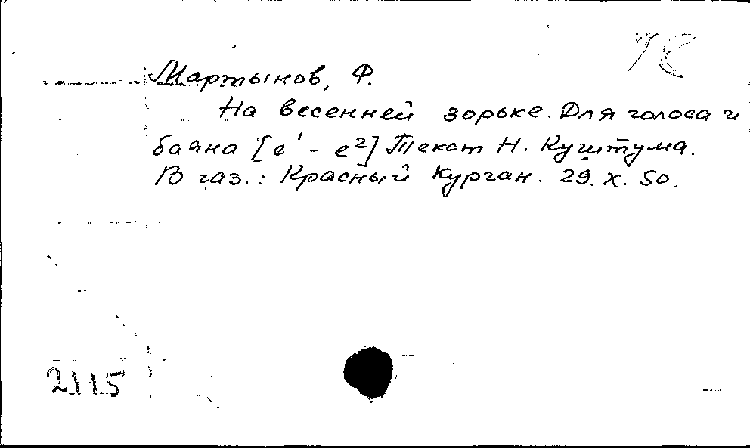 Мартынов, Ф.
На весенней зорьке. Для голоса и
баяна [e¹ - e²] Текст Н. Куштума.
В газ.: Красный Курган. 29. X. 50.
2115